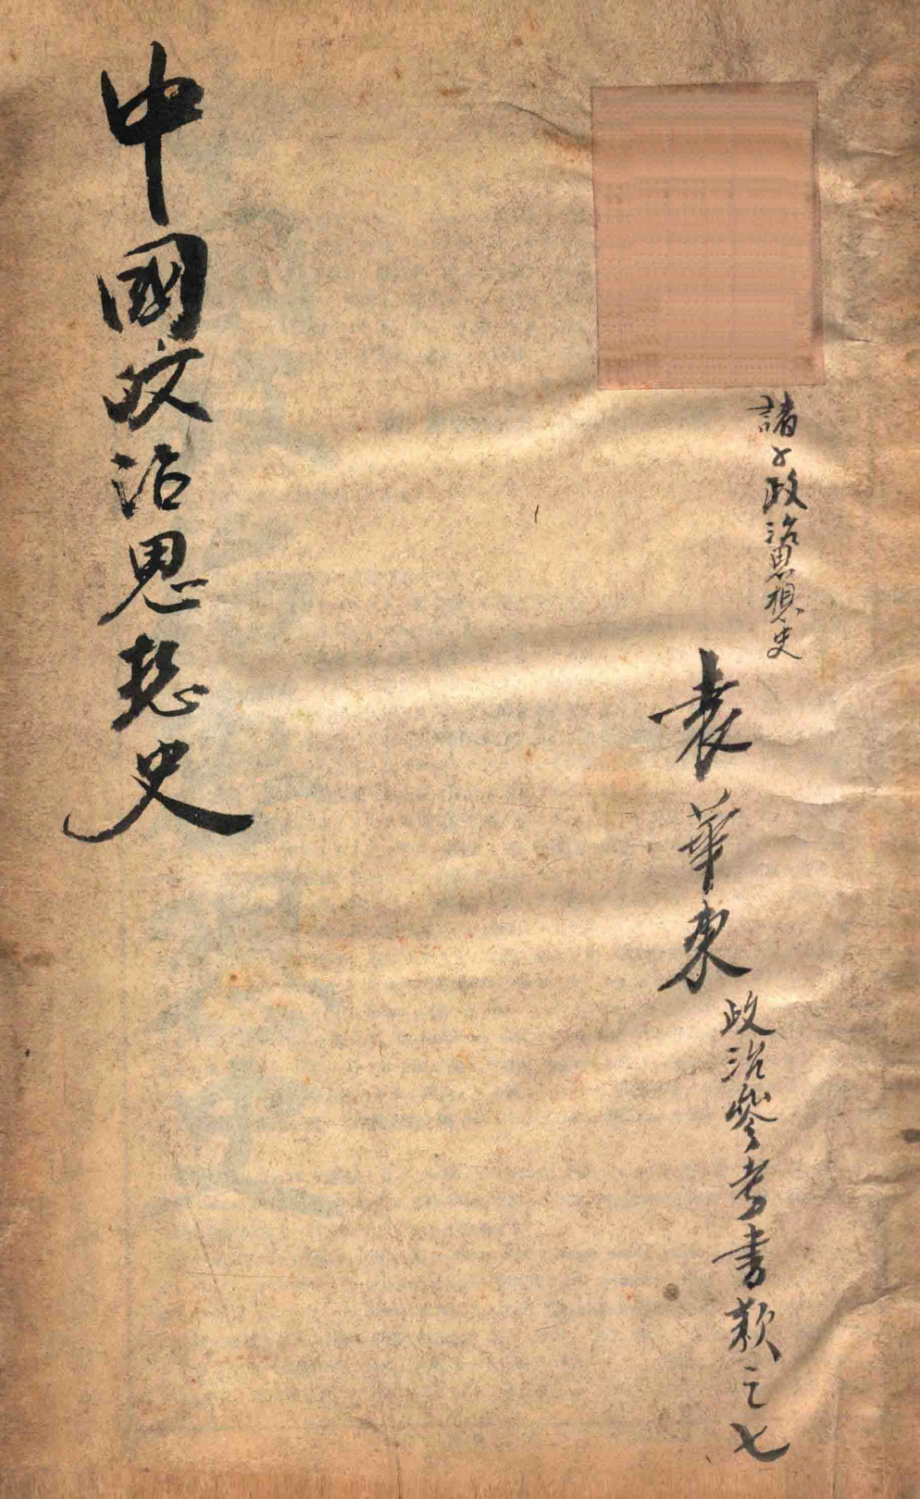 諸子政治思想史
袁華東
政治參考書類之七
中國政治思想史